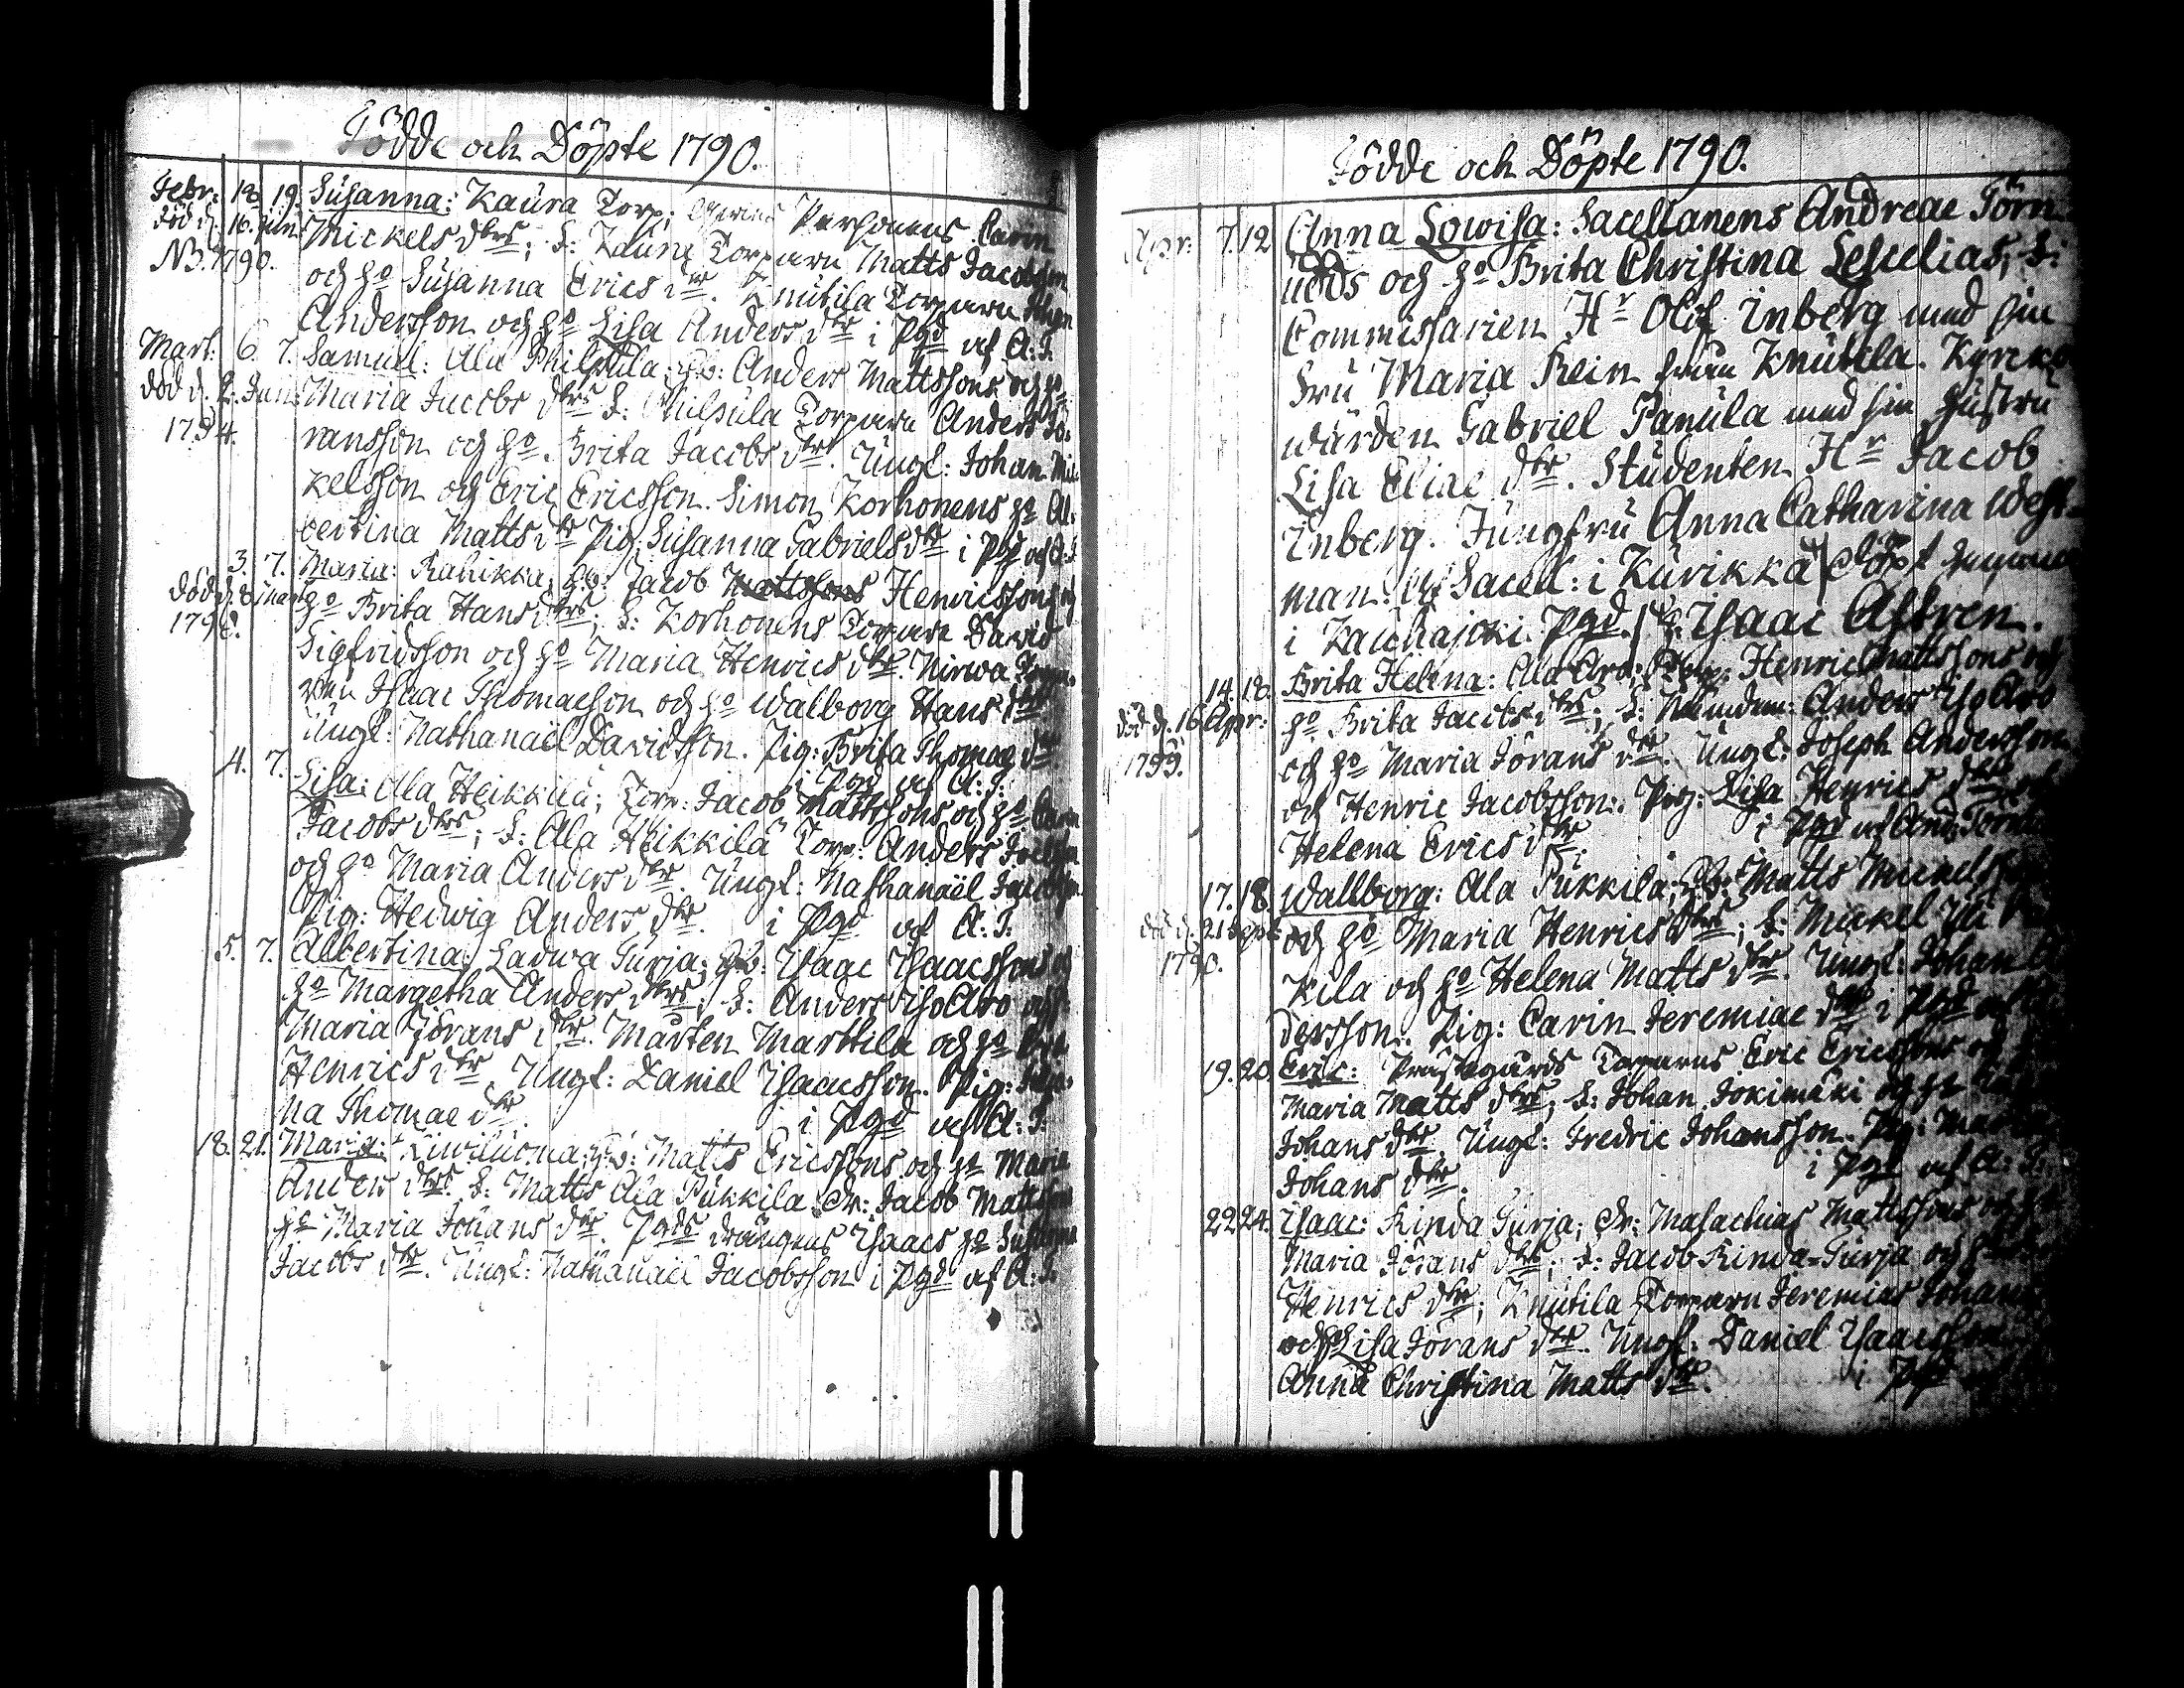 Födde och Döpte 1790.
Febr: 18. 19. Susanna: Kaura Torp: Personens Carin
död d. 16. Jun. Mickels dtrs; F: Kaura Torparn Matts Jacobsson
N3. 1790. och ho Susanna Erics dtr. Knutila Torparn
Andersson och ho Lisa Anders dtr i Pgd af A: T.
Mart: 6. 7. Samuel: Ala Philpula; Gb: Anders Mattssons och ho
död d. 2. Jun: Maria Jacobs dtrs F: Philpula Torparn Anders Jö-
1794. ransson och ho Brita Jacobs dtr. Ungl: Johan Mic
kelsson och Eric Ericsson. Simon Korhonens ho Al-
bertina Matts dtr Pig: Susanna Gabriels dtr i Pgd af A: T
3. 7. Maria: Rahikka; Gb: Jacob Mattssons Henricssons och
död d. 8 Mart ho Brita Hans dtrs; F: Korhonens Torpare David
179
Sigfridsson och ho Maria Henrics dtr. Nirwa Torpa-
ren Isaac Thomasson och ho Walborg Hans dtr
Ungl: Nathanaël Davidsson. Pig: Brita Thomae dtr
i Pgd af A: T.
4. 7. Lisa: Ala Heikkilä; Torp: Jacob Mattssons och ho Carin
Jacobs dtrs; F: Ala Heikkilä Torp: Anders Joelsson
och ho Maria Anders dtr. Ungl: Nathanaël Jacobsson
Pig: Hedwig Anders dtr. i Pgd af A: T.
5. 7. Albertina: Ladwa Turja; Gb: Isaac Isaacssons och
ho Margetha Anders dtrs; F: Anders Iso Aro och
Maria Jörans dtr. Mårten Marttila och ho
Henrics dtr. Ungl: Daniel Isaacsson. Pig: Hele-
na Thomae dtr. i Pgd af A: T.
18. 21. Maria: Kiwiluoma; Gb: Matts Ericssons och ho Maria
Anders dtrs. F: Matts Ala Pukkila. Dr: Jacob Mattssons
ho Maria Johans dtr. Pgds drängens Isaacs ho Susanna
Jacobs dtr. Ungl: Nathanaël Jacobsson i Pgd af A: T.
Födde och Döpte 1790.
Apr: 7. 12 Anna Lowisa: Sacellanens Andreae Törn-
udds och ho Brita Christina Lescelias; F:
Commissarien Hr Olof Inberg med sin
Fru Maria Rein från Knutila. Kyrko
wärden Gabriel Panula med sin hustru
Lisa Eliae dtr. Studenten Hr Jacob
Inberg. Jungfru Anna Catharina West-
man. Af Sacell: i Kurikka döpt hemma
i Kauhajoki Pgd. Isaac Alfren.
14. 18. Brita Helena: Ala Aro; Henric Mattssons och
död d. 16 Apr: ho Brita Jacobs dtrs; F: Anders Iso Aro
1799. och ho Maria Jörans dtr. Ungl: Joseph Andersson
och Henric Jacobsson. Pig: Lisa Henrics dtr och
Helena Erics dtr. i Pgd af And: Törnudd
17. 18. Wallborg: Ala Pukkila; Gb: Matts Mickelssons
död d. 21 Sept och ho Maria Henrics dtrs; F: Mickel Yli Puk-
1790. kila och ho Helena Matts dtr. Ungl: Johan An
dersson. Pig: Carin Jeremiae dtr i Pgd af
19. 20. Eric: Prästegårds Torparens Eric Ericssons och
Maria Matts dtrs; F: Johan Jokimäki och ho
Johans dtr. Ungl: Fredric Johansson. Pig: Maria
Johans dtr. i Pgd af A: T:
22. 24. Isaac: Rinda Turja; Dr: Malachias Mattssons och ho
Maria Jörans dtrs; F: Jacob Rinda-Turja och
Henrics dtr; Knutila Torparn Jeremias Johan
och ho Lisa Jörans dtr. Ungl: Daniel Isaacsson
Anna Christina Matts dtr. i Pgd af